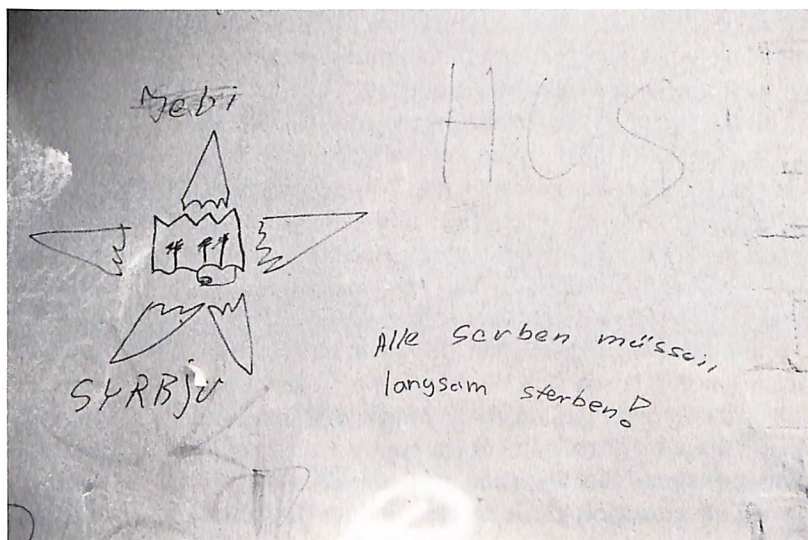 Jebi
HCS
SYRBjU
Alle Serben müssen
langsam sterben!